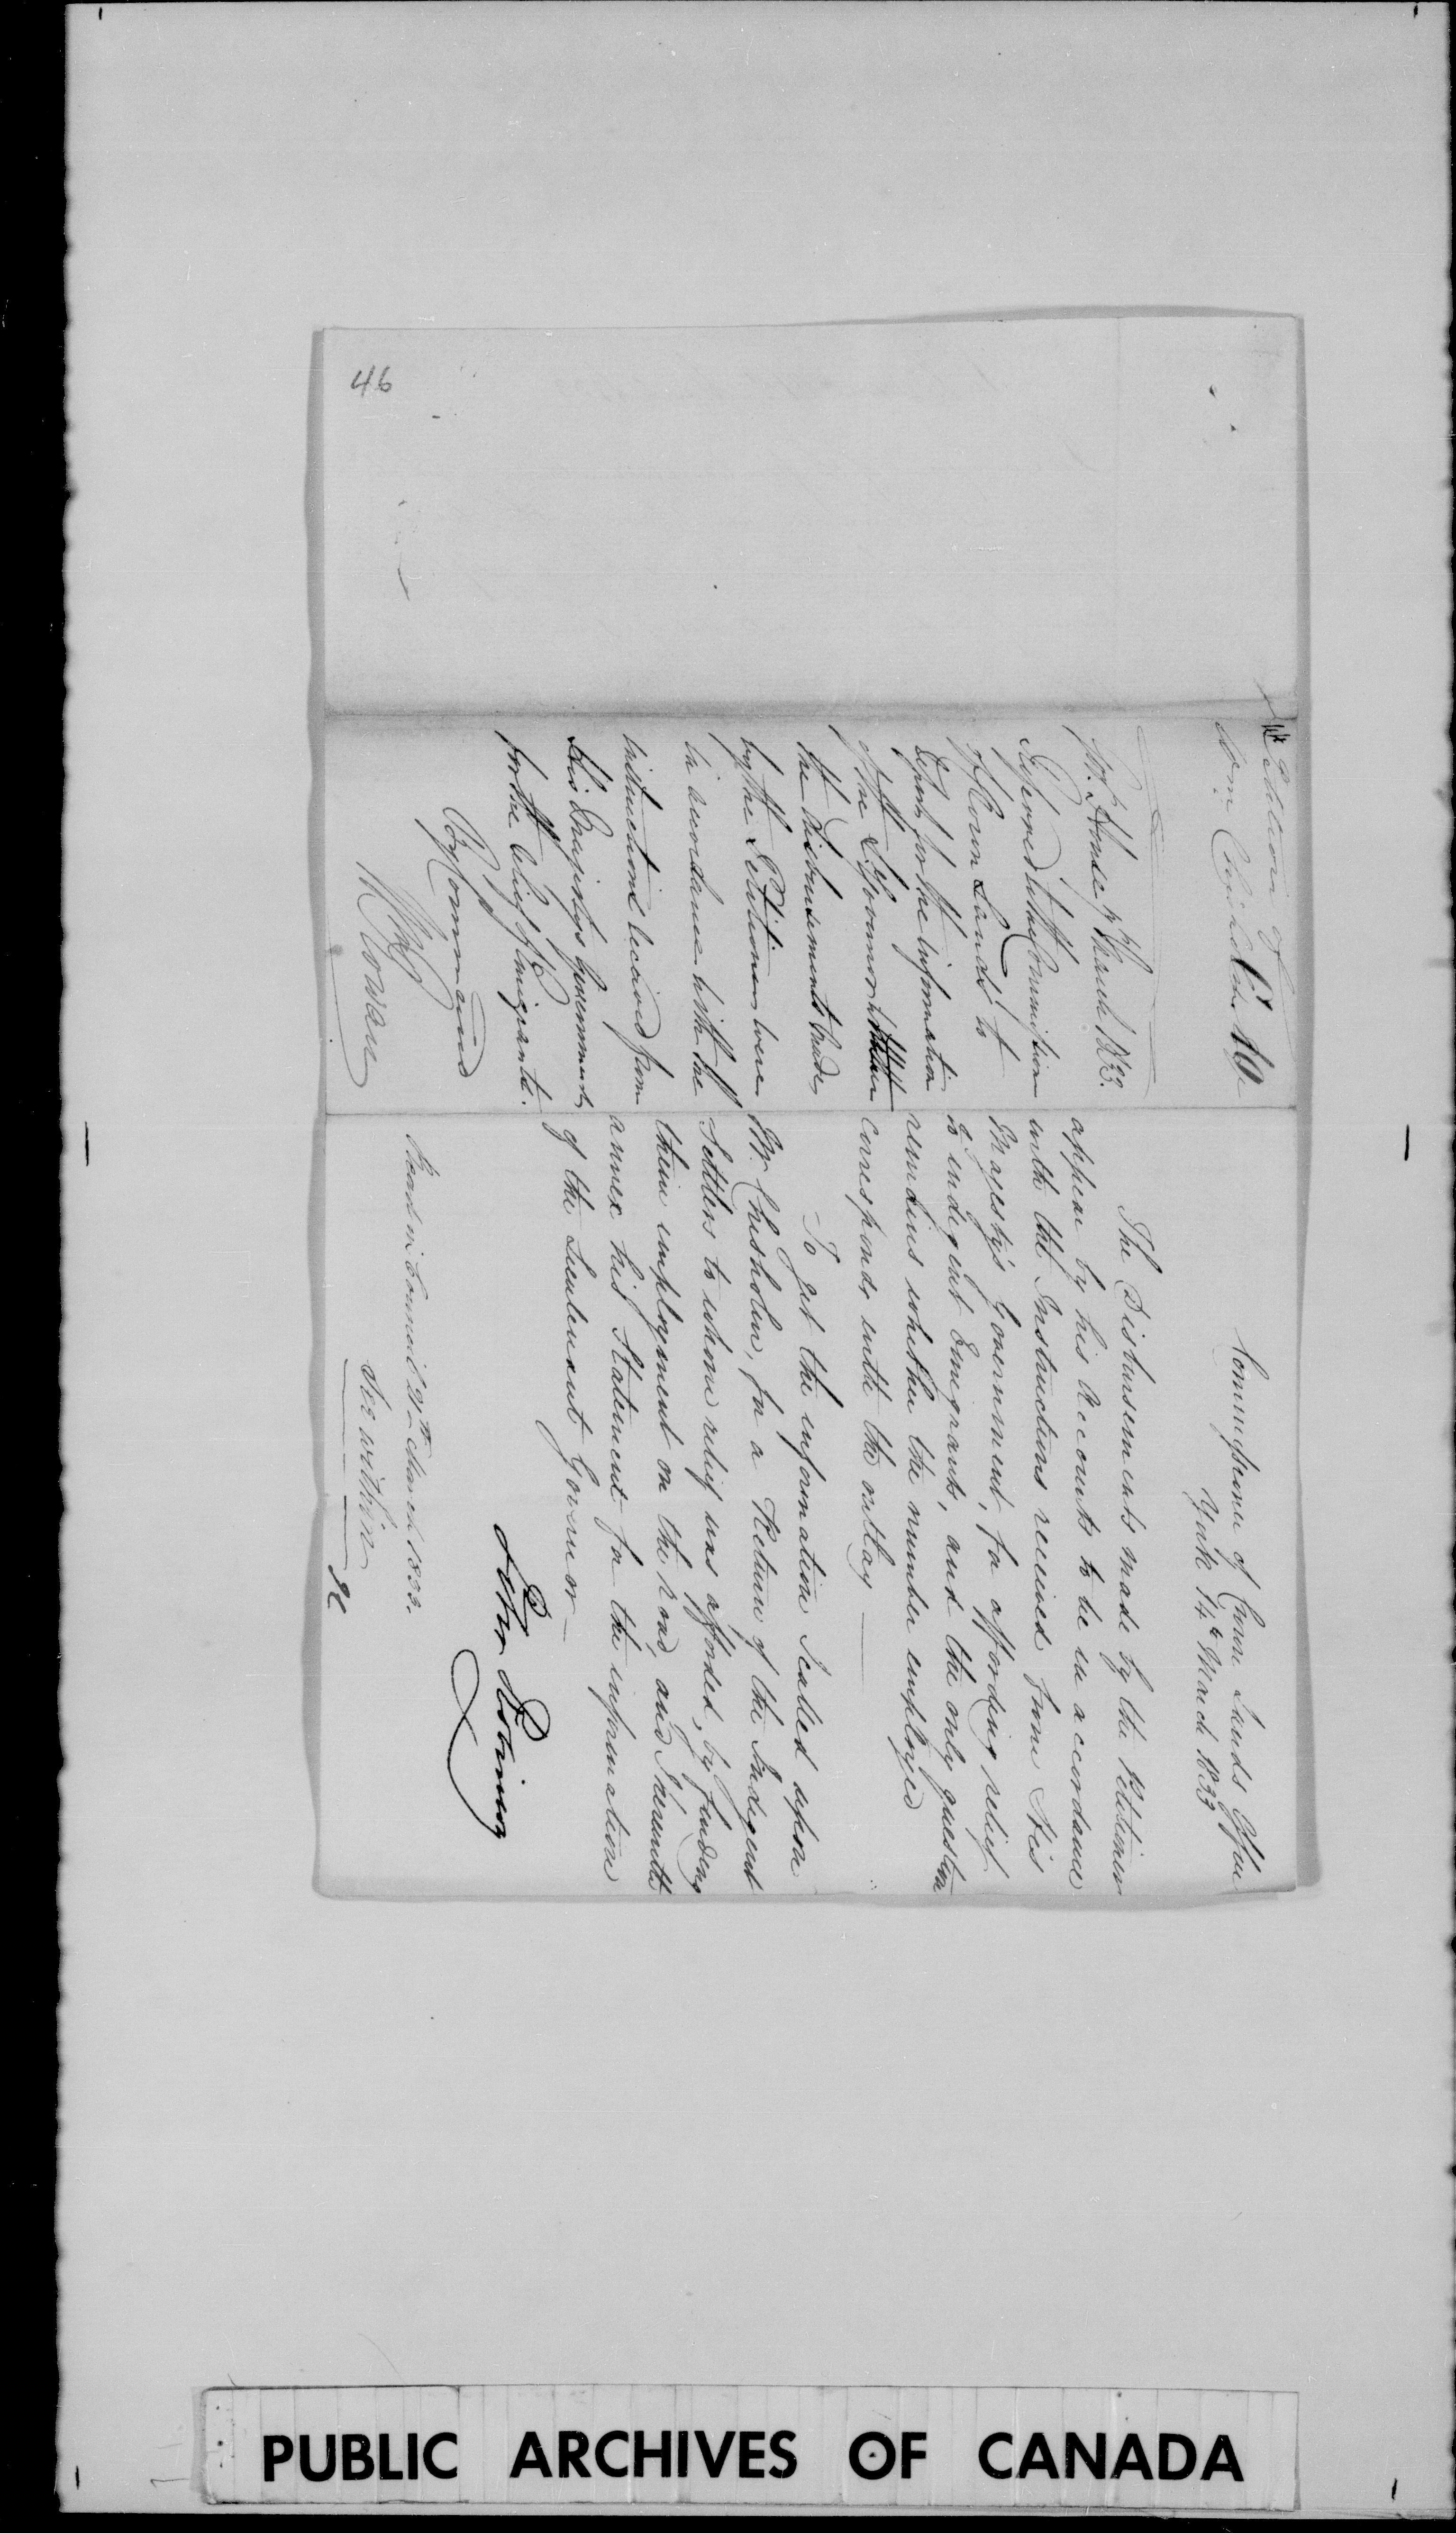 46
Petition of
Wm Chisholm
C 10
Govt. House 9th March 1833.
Referred to the Commissioner
of Crown Lands to
Report for the information
of the Lt Governor whether
the disbursements made
by the Petitioner were
in accordance with the
instructions received from
His Majestys Government
for the relief of Emigrants.
By Command
Wm Rowan
Commissioner of Crown Lands Office
York 14th March 1833
The Disbursements made by the Petitioner
appear by his Accounts to be in accordance
with the Instructions received from His
Majesty's Government, for affording relief
to indigent Emigrants, and the only question
remains whether the number employed
corresponds with the outlay
To get the information I called upon
Mr. Chisholm, for a Return of the Indigent
Settlers to whom relief was afforded, by finding
them employment on the road, and I herewith
annex his Statement for the information
of the Lieutenant Governor
Peter Robinson
Read in Council 21st March 1833.
See within
PUBLIC ARCHIVES OF CANADA